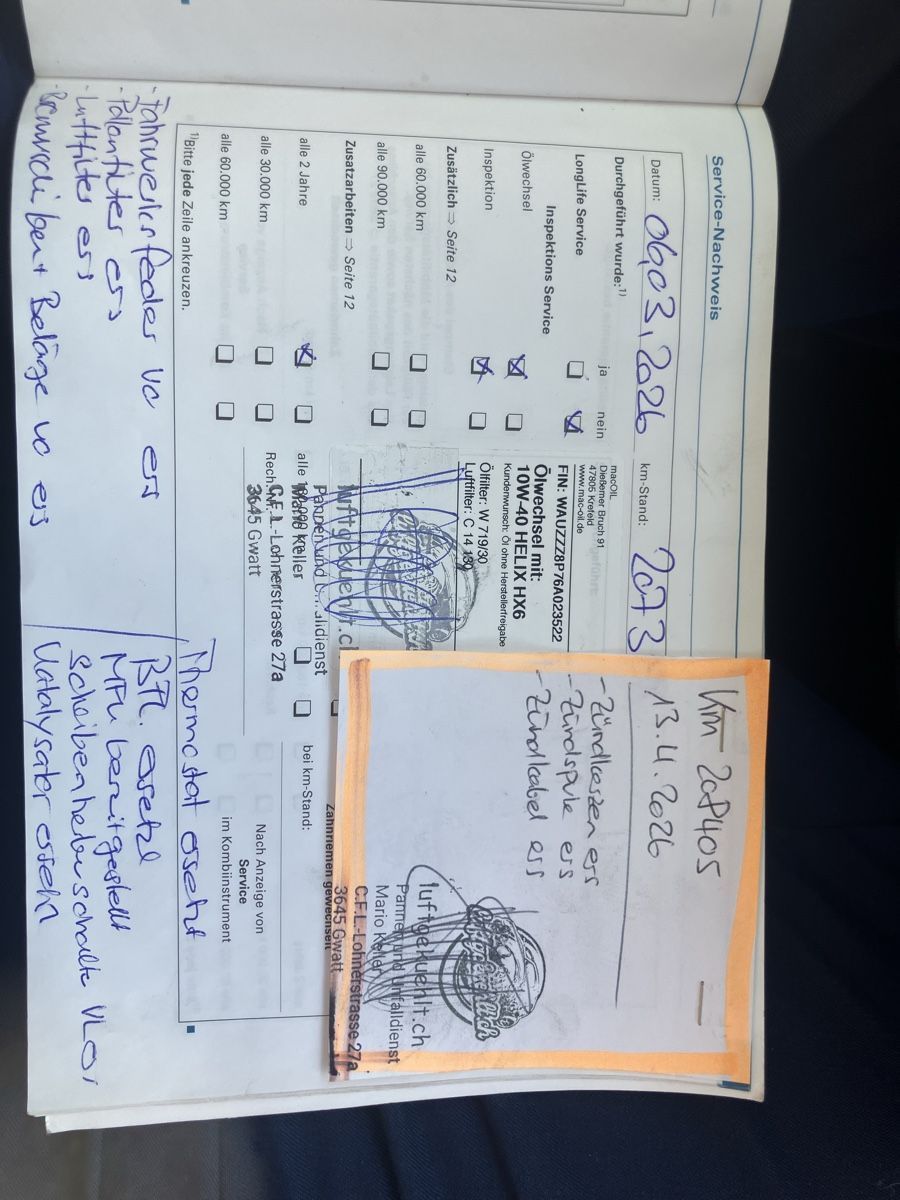 Service-Nachweis
Datum: 06.03.2026 km-Stand: 207 3
Durchgeführt wurde:¹⁾ ja nein
LongLife Service
Inspektions Service
Ölwechsel
Inspektion
Zusätzlich ⇒ Seite 12
alle 60.000 km
alle 90.000 km
Zusatzarbeiten ⇒ Seite 12
alle 2 Jahre
alle 30.000 km
alle 60.000 km
¹⁾Bitte jede Zeile ankreuzen.
macOIL
Dießemer Bruch 91
47805 Krefeld
www.mac-oil.de
FIN: WAUZZZ8P76A023522
Ölwechsel mit:
10W-40 HELIX HX6
Kundenwunsch: Öl ohne Herstellerfreigabe
Ölfilter: W 719/30
Luftfilter: C 14 130
luftgekuehlt.ch
Pannen und Unfalldienst
Mario Keller
C.F.L.-Lohnerstrasse 27a
3645 Gwatt
bei km-Stand:
Zahnriemen gewechselt
Nach Anzeige von
Service
im Kombiinstrument
Km 208405
13.4.2026
- Zündkerzen ers
- Zündspule ers
- Zündkabel ers
luftgekuehlt.ch
Pannen und Unfalldienst
Mario Keller
C.F.L.-Lohnerstrasse 27a
3645 Gwatt
- Fahrwerksfeder va ers
- Pollenfilter ers
- Luftfilter ers
Beläge va ers
Thermostat ersetzt
ersetzt
Katalysator